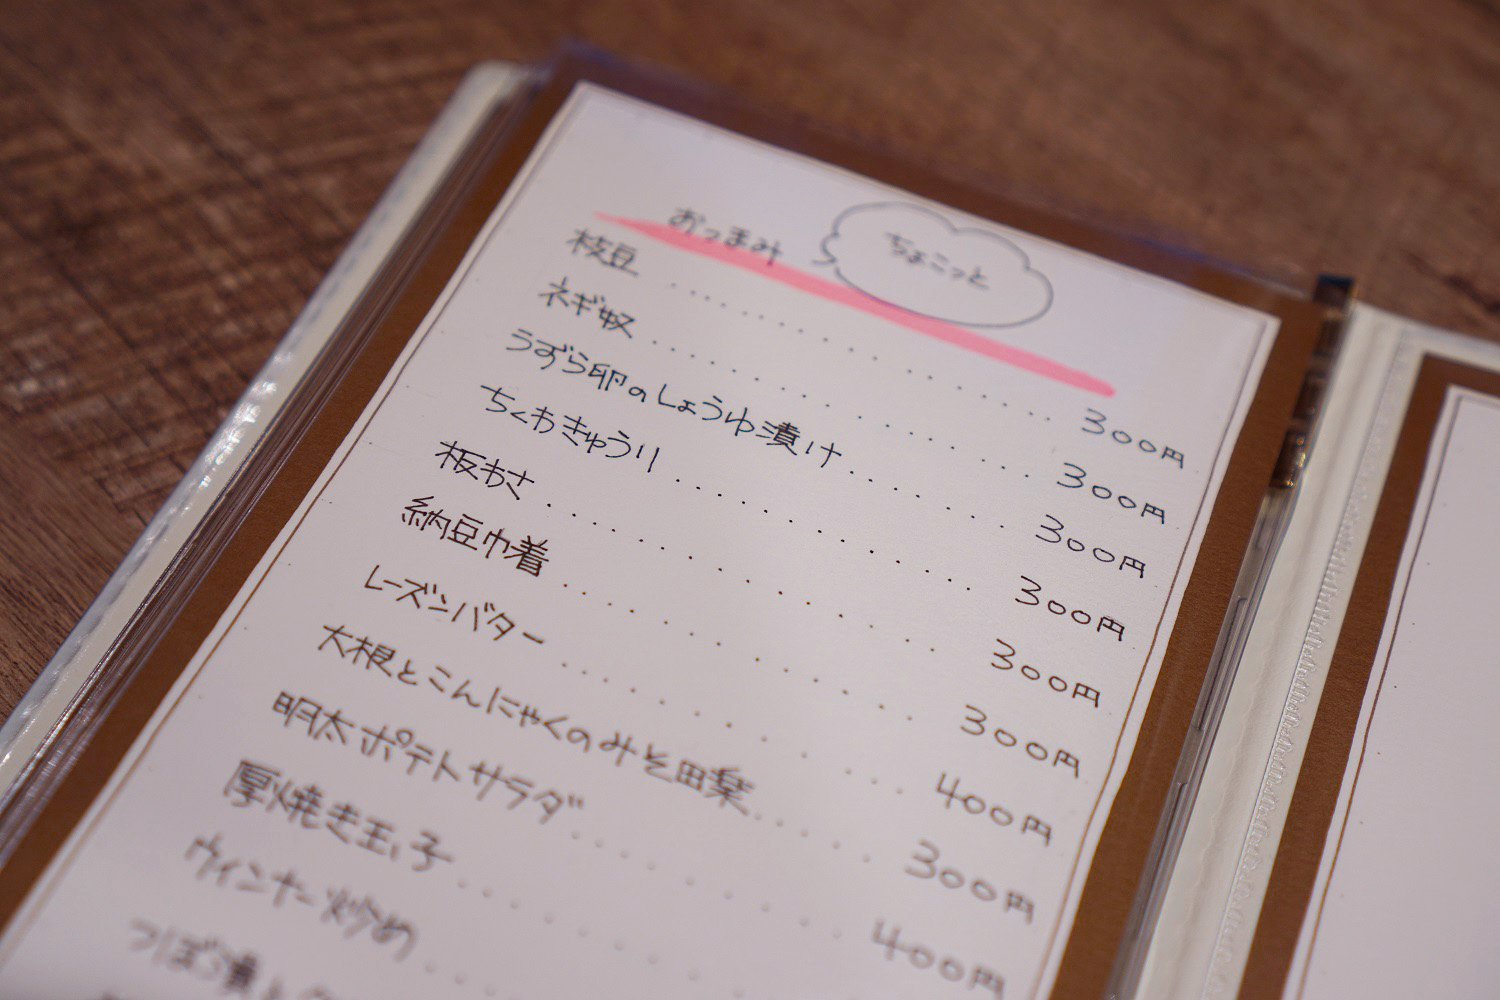 おつまみ ちょこっと
枝豆 ........... 300円
ネギ奴 ........... 300円
うずら卵のしょうゆ漬け ....... 300円
ちくわきゅうり ........... 300円
板わさ ........... 300円
納豆巾着 ........... 300円
レーズンバター ........... 400円
大根とこんにゃくのみそ田楽 ..... 300円
明太ポテトサラダ ........ 400円
厚焼き玉子 ........
ウィンナー炒め .....
つぼ漬と